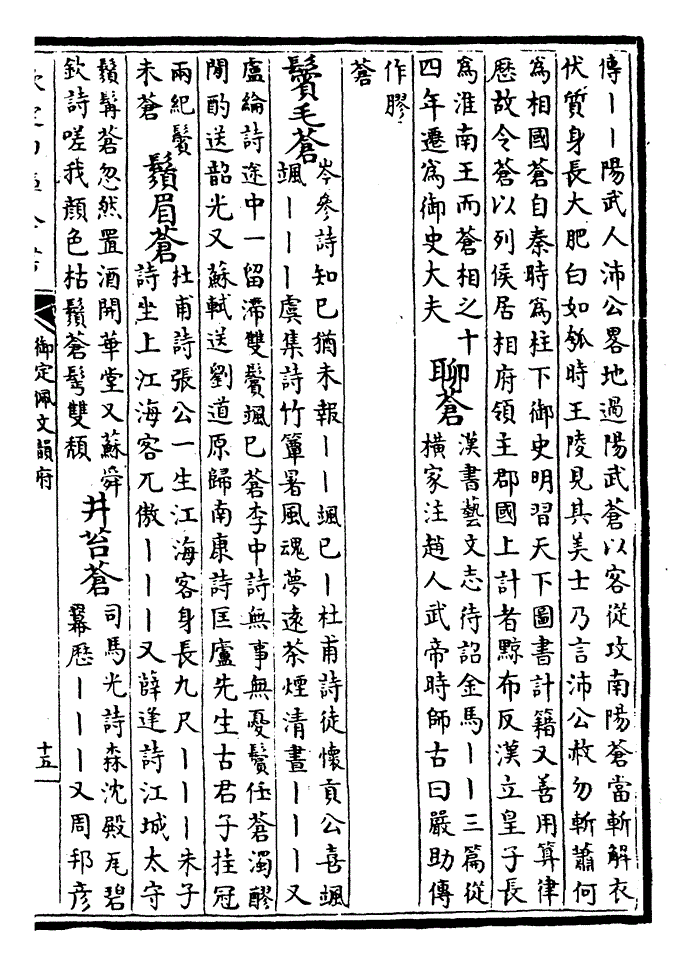 傳丨丨陽武人沛公畧地過陽武蒼以客從攻南陽蒼當斬解衣
伏質身長大肥白如瓠時王陵見其美士乃言沛公赦勿斬蕭何
為相國蒼自秦時為柱下御史明習天下圖書計籍又善用算律
厯故令蒼以列侯居相府領主郡國上計者黥布反漢立皇子長
為淮南王而蒼相之十
四年遷為御史大夫
聊蒼
漢書藝文志待詔金馬丨丨三篇從
橫家注趙人武帝時師古曰嚴助傳
作膠
蒼
鬢毛蒼
岑參詩知已猶未報丨丨颯已丨杜甫詩徒懷貢公喜颯
颯丨丨丨虞集詩竹簟暑風魂夢遠茶煙清晝丨丨丨又
盧綸詩途中一留滯雙鬢颯已蒼李中詩無事無憂鬢任蒼濁醪
閒酌送韶光又蘇軾送劉道原歸南康詩匡廬先生古君子挂冠
兩紀鬢
未蒼
鬚眉蒼
杜甫詩張公一生江海客身長九尺丨丨丨朱子
詩坐上江海客兀傲丨丨丨又薛逢詩江城太守
鬚髯蒼忽然置酒開華堂又蘇舜
欽詩嗟我顏色枯鬚蒼髩雙頹
井苔蒼
司馬光詩森沈殿瓦碧
羃歷丨丨丨又周邦彥
御定佩文韻府
十五